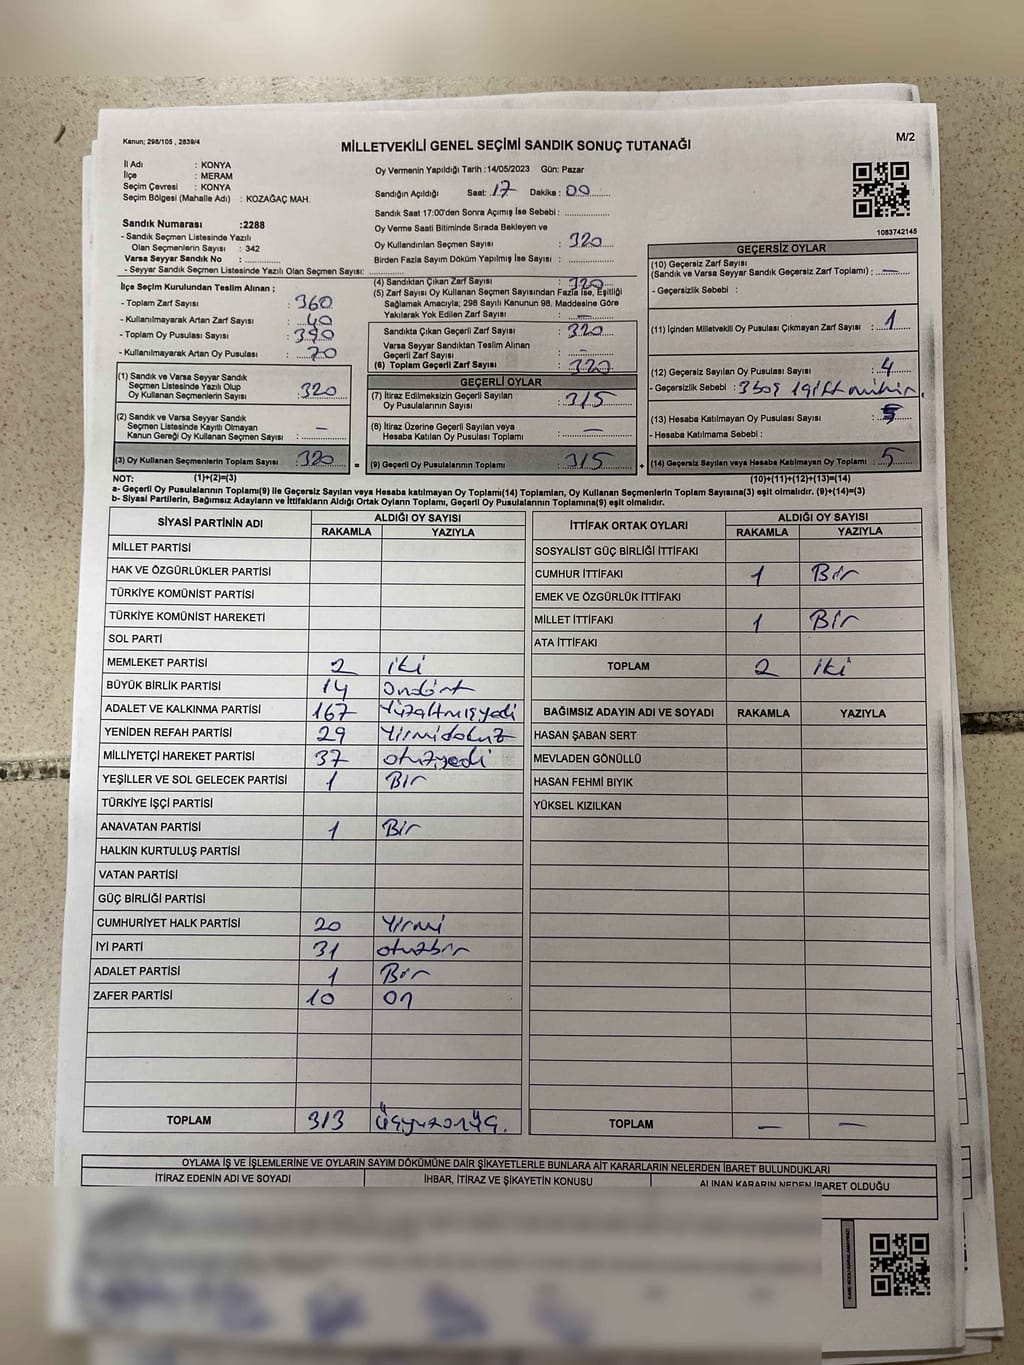 Kanun; 298/105 , 2839/4
M/2
MİLLETVEKİLİ GENEL SEÇİMİ SANDIK SONUÇ TUTANAĞI
İl Adı : KONYA
İlçe : MERAM
Seçim Çevresi : KONYA
Seçim Bölgesi (Mahalle Adı) : KOZAĞAÇ MAH.
Sandık Numarası :2288
- Sandık Seçmen Listesinde Yazılı
Olan Seçmenlerin Sayısı : 342
Varsa Seyyar Sandık No :
- Seyyar Sandık Seçmen Listesinde Yazılı Olan Seçmen Sayısı:
Oy Vermenin Yapıldığı Tarih :14/05/2023 Gün: Pazar
Sandığın Açıldığı Saat: 17 Dakika : 00
Sandık Saat 17:00'den Sonra Açımış İse Sebebi :
Oy Verme Saati Bitiminde Sırada Bekleyen ve
Oy Kullandırılan Seçmen Sayısı : 320
Birden Fazla Sayım Döküm Yapılmış İse Sayısı :
1083742145
İlçe Seçim Kurulundan Teslim Alınan ;
- Toplam Zarf Sayısı : 360
- Kullanılmayarak Artan Zarf Sayısı : 40
- Toplam Oy Pusulası Sayısı : 390
- Kullanılmayarak Artan Oy Pusulası : 70
(1) Sandık ve Varsa Seyyar Sandık
Seçmen Listesinde Yazılı Olup
Oy Kullanan Seçmenlerin Sayısı : 320
(2) Sandık ve Varsa Seyyar Sandık
Seçmen Listesinde Kayıtlı Olmayan
Kanun Gereği Oy Kullanan Seçmen Sayısı : —
(3) Oy Kullanan Seçmenlerin Toplam Sayısı : 320
(4) Sandıktan Çıkan Zarf Sayısı : 320
(5) Zarf Sayısı Oy Kullanan Seçmen Sayısından Fazla İse, Eşitliği
Sağlamak Amacıyla; 298 Sayılı Kanunun 98. Maddesine Göre
Yakılarak Yok Edilen Zarf Sayısı : —
Sandıkta Çıkan Geçerli Zarf Sayısı : 320
Varsa Seyyar Sandıktan Teslim Alınan
Geçerli Zarf Sayısı : -
(6) Toplam Geçerli Zarf Sayısı : 320
GEÇERLİ OYLAR
(7) İtiraz Edilmeksizin Geçerli Sayılan
Oy Pusulalarının Sayısı : 315
(8) İtiraz Üzerine Geçerli Sayılan veya
Hesaba Katılan Oy Pusulası Toplamı : —
= (9) Geçerli Oy Pusulalarının Toplamı : 315
GEÇERSİZ OYLAR
(10) Geçersiz Zarf Sayısı
(Sandık ve Varsa Seyyar Sandık Geçersiz Zarf Toplamı) : —
- Geçersizlik Sebebi :
(11) İçinden Milletvekili Oy Pusulası Çıkmayan Zarf Sayısı : 1
(12) Geçersiz Sayılan Oy Pusulası Sayısı : 4
- Geçersizlik Sebebi : 3 boş 1 çift mühür
(13) Hesaba Katılmayan Oy Pusulası Sayısı :
- Hesaba Katılmama Sebebi :
+ (14) Geçersiz Sayılan veya Hesaba Katılmayan Oy Toplamı : 5
NOT: (1)+(2)=(3) (10)+(11)+(12)+(13)=(14)
a- Geçerli Oy Pusulalarının Toplamı(9) ile Geçersiz Sayılan veya Hesaba katılmayan Oy Toplamı(14) Toplamları, Oy Kullanan Seçmenlerin Toplam Sayısına(3) eşit olmalıdır. (9)+(14)=(3)
b- Siyasi Partilerin, Bağımsız Adayların ve İttifakların Aldığı Ortak Oyların Toplamı, Geçerli Oy Pusulalarının Toplamına(9) eşit olmalıdır.
SİYASİ PARTİNİN ADI ALDIĞI OY SAYISI
RAKAMLA YAZIYLA
MİLLET PARTİSİ
HAK VE ÖZGÜRLÜKLER PARTİSİ
TÜRKİYE KOMÜNİST PARTİSİ
TÜRKİYE KOMÜNİST HAREKETİ
SOL PARTİ
MEMLEKET PARTİSİ 2 iki
BÜYÜK BİRLİK PARTİSİ 14 Ondört
ADALET VE KALKINMA PARTİSİ 167 Yüzaltmışyedi
YENİDEN REFAH PARTİSİ 29 Yirmidokuz
MİLLİYETÇİ HAREKET PARTİSİ 37 otuzyedi
YEŞİLLER VE SOL GELECEK PARTİSİ 1 Bir
TÜRKİYE İŞÇİ PARTİSİ
ANAVATAN PARTİSİ 1 Bir
HALKIN KURTULUŞ PARTİSİ
VATAN PARTİSİ
GÜÇ BİRLİĞİ PARTİSİ
CUMHURİYET HALK PARTİSİ 20 Yirmi
İYİ PARTİ 31 otuzbir
ADALET PARTİSİ 1 Bir
ZAFER PARTİSİ 10 on
TOPLAM 313 Üçyüzonüç.
İTTİFAK ORTAK OYLARI ALDIĞI OY SAYISI
RAKAMLA YAZIYLA
SOSYALİST GÜÇ BİRLİĞİ İTTİFAKI
CUMHUR İTTİFAKI 1 Bir
EMEK VE ÖZGÜRLÜK İTTİFAKI
MİLLET İTTİFAKI 1 Bir
ATA İTTİFAKI
TOPLAM 2 iki
BAĞIMSIZ ADAYIN ADI VE SOYADI RAKAMLA YAZIYLA
HASAN ŞABAN SERT
MEVLADEN GÖNÜLLÜ
HASAN FEHMİ BIYIK
YÜKSEL KIZILKAN
TOPLAM — —
OYLAMA İŞ VE İŞLEMLERİNE VE OYLARIN SAYIM DÖKÜMÜNE DAİR ŞİKAYETLERLE BUNLARA AİT KARARLARIN NELERDEN İBARET BULUNDUKLARI
İTİRAZ EDENİN ADI VE SOYADI İHBAR, İTİRAZ VE ŞİKAYETİN KONUSU ALINAN KARARIN NEDEN İBARET OLDUĞU